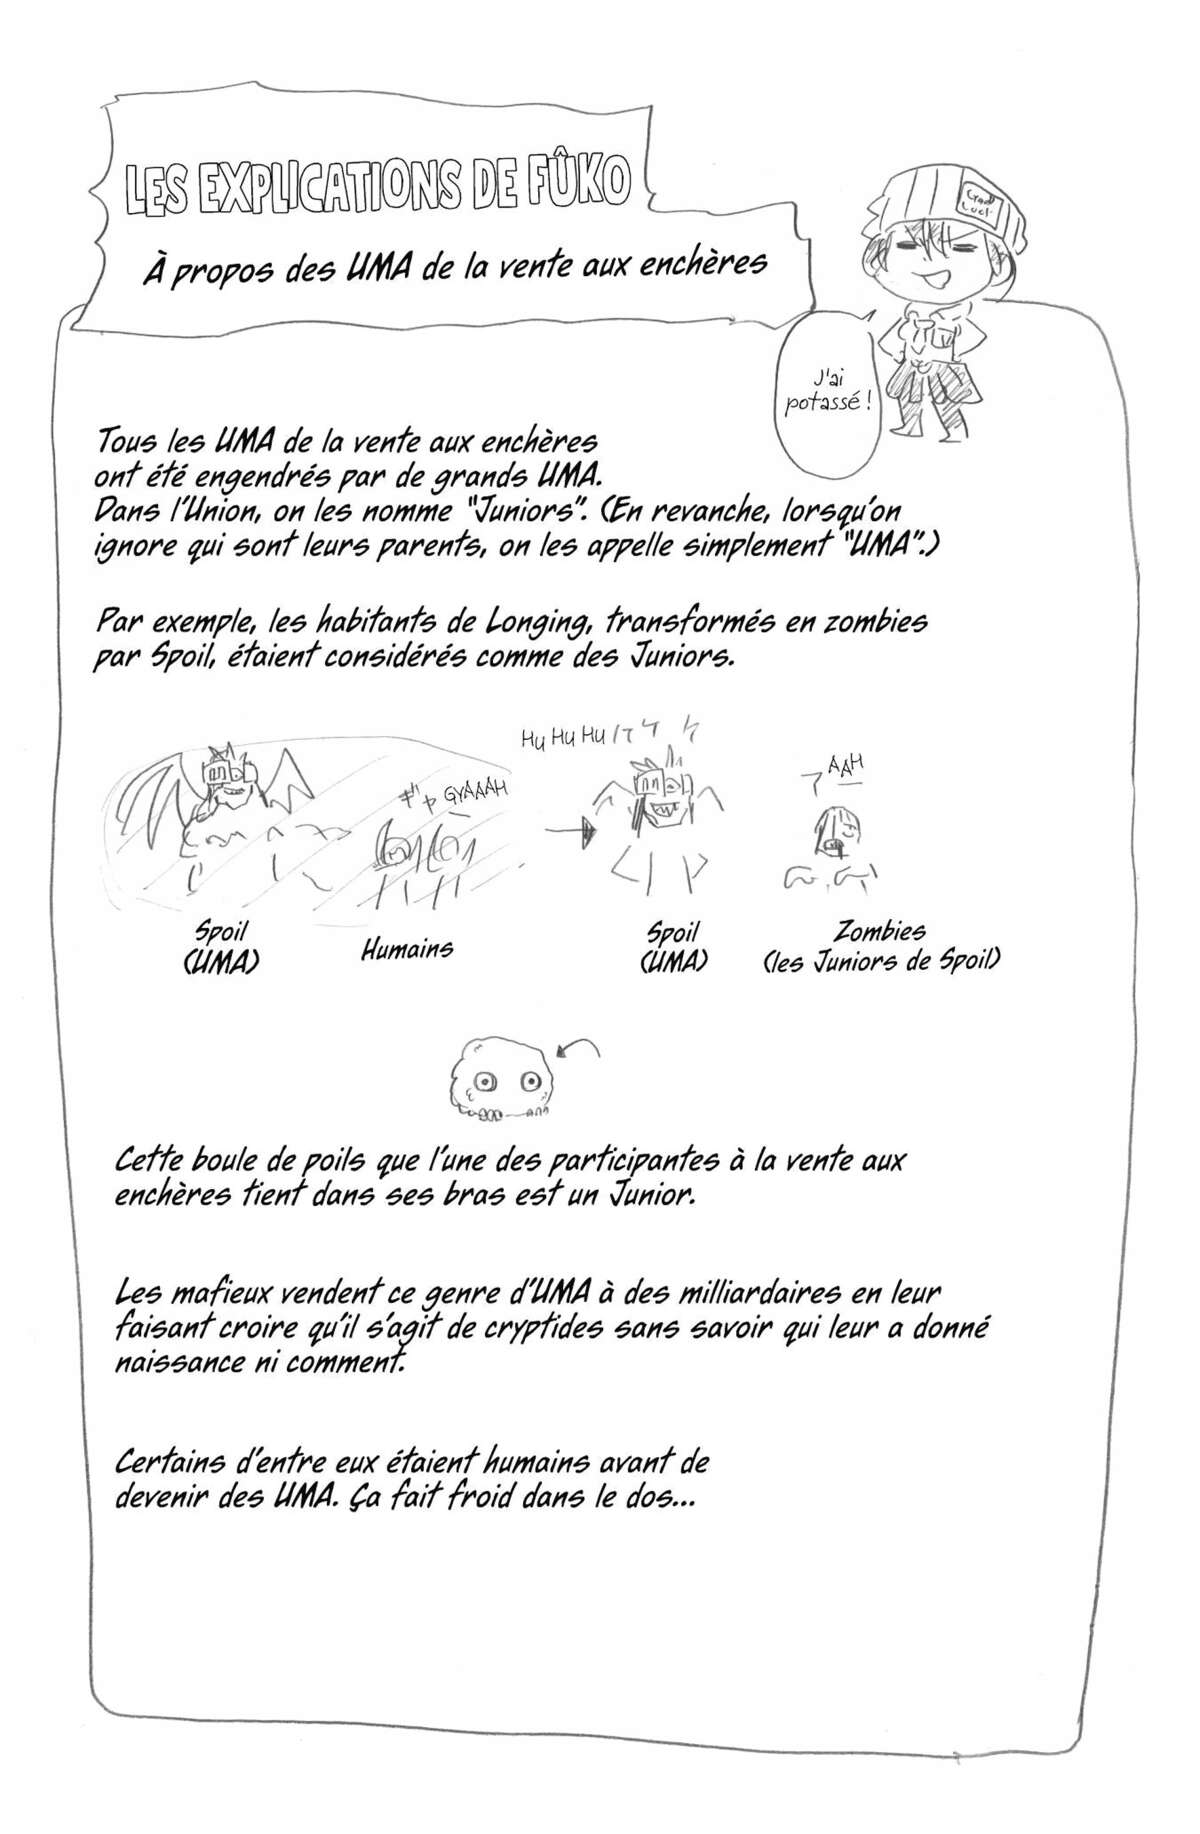 LES EXPLICATIONS DE FÛKO
À propos des UMA de la vente aux enchères
Good
Luck
J'ai
potassé !
Tous les UMA de la vente aux enchères
ont été engendrés par de grands UMA.
Dans l'Union, on les nomme "Juniors". (En revanche, lorsqu'on
ignore qui sont leurs parents, on les appelle simplement "UMA".)
Par exemple, les habitants de Longing, transformés en zombies
par Spoil, étaient considérés comme des Juniors.
ギャ GYAAAH
Hu Hu Hu
アー AAH
Spoil
(UMA)
Humains
Spoil
(UMA)
Zombies
(les Juniors de Spoil)
Cette boule de poils que l'une des participantes à la vente aux
enchères tient dans ses bras est un Junior.
Les mafieux vendent ce genre d'UMA à des milliardaires en leur
faisant croire qu'il s'agit de cryptides sans savoir qui leur a donné
naissance ni comment.
Certains d'entre eux étaient humains avant de
devenir des UMA. Ça fait froid dans le dos...